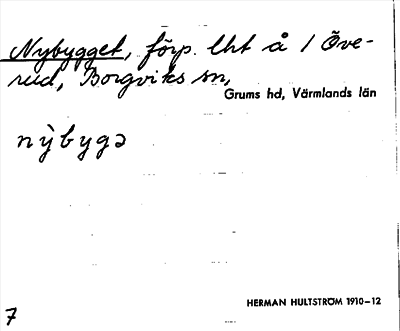 Nybygget, förp. lht å 1 Öve-
rud, Borgviks sn,
Grums hd, Värmlands län
nỳbygə
HERMAN HULTSTRÖM 1910–12
7